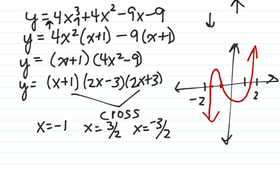 y = 4x³ + 4x² - 9x - 9
y = 4x²(x+1) - 9(x+1)
y = (x+1)(4x² - 9)
y = (x+1)(2x-3)(2x+3)
cross
x = -1 x = 3/2 x = -3/2
-2 2